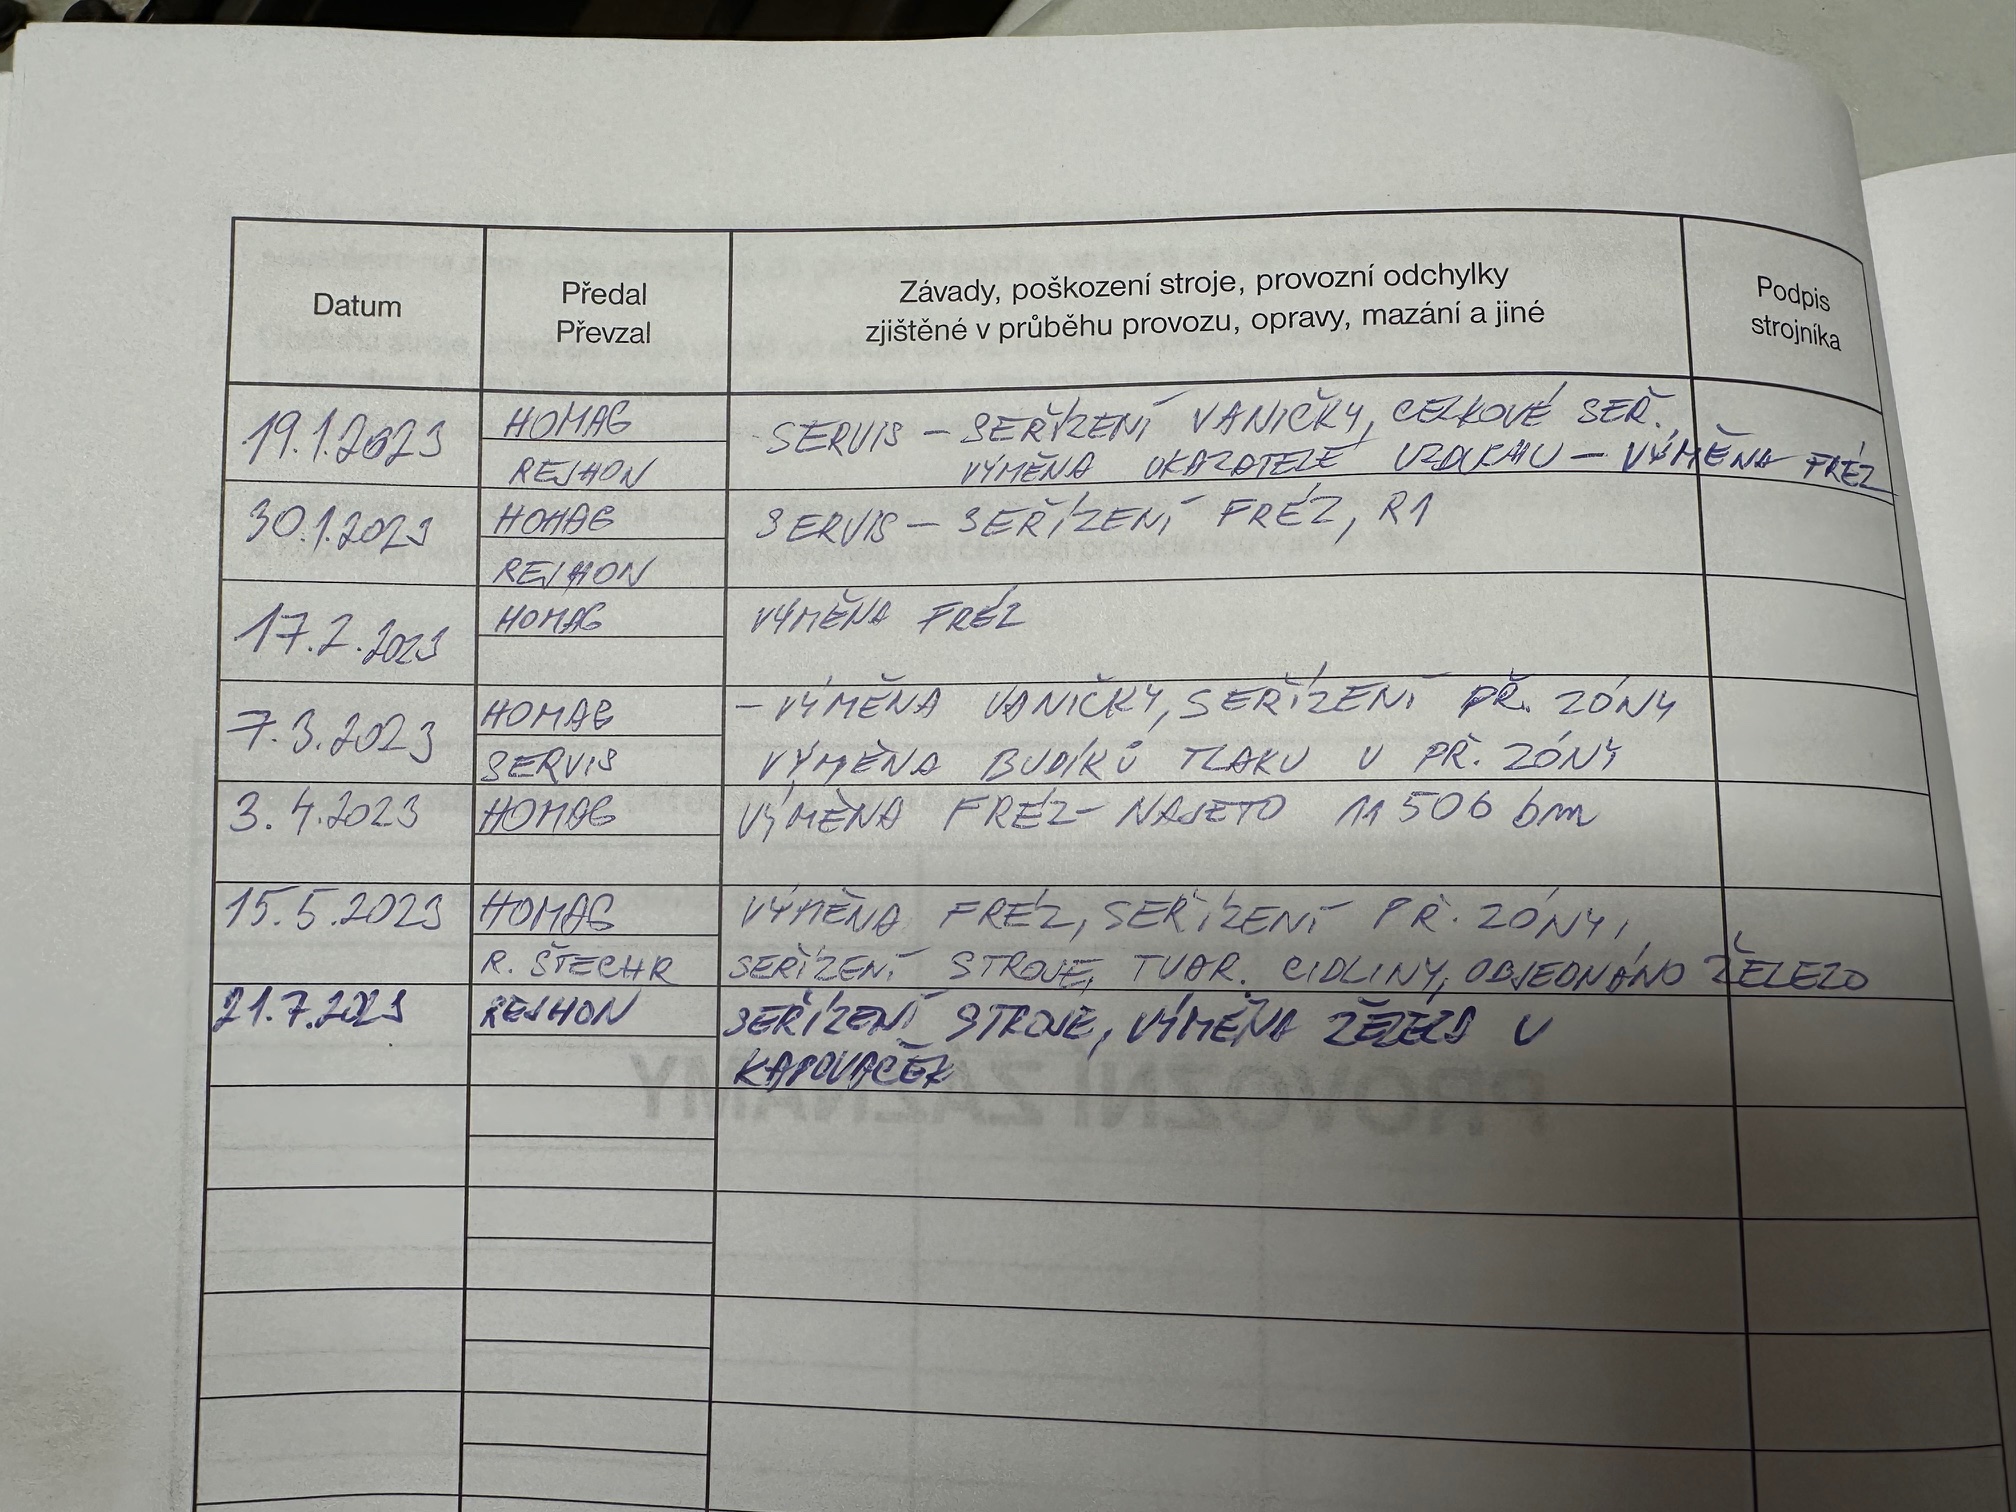 Datum
Předal
Převzal
Závady, poškození stroje, provozní odchylky
zjištěné v průběhu provozu, opravy, mazání a jiné
Podpis
strojníka
19.1.2023
HOMAG
REJHON
SERVIS – SEŘÍZENÍ VANIČKY, CELKOVÉ SEŘ.,
VÝMĚNA UKAZATELE VZDUCHU – VÝMĚNA FRÉZ
30.1.2023
HOMAG
REJHON
SERVIS – SEŘÍZENÍ FRÉZ, R1
17.2.2023
HOMAG
VÝMĚNA FRÉZ
7.3.2023
HOMAG
SERVIS
– VÝMĚNA VANIČKY, SEŘÍZENÍ PŘ. ZÓNY
VÝMĚNA BUDÍKŮ TLAKU U PŘ. ZÓNY
3.4.2023
HOMAG
VÝMĚNA FRÉZ – NAJETO 11 506 bm
15.5.2023
HOMAG
R. ŠTECHR
VÝMĚNA FRÉZ, SEŘÍZENÍ PŘ. ZÓNY,
SEŘÍZENÍ STROJE, TVAR. CIDLINY, OBJEDNÁNO ŽELEZO
21.7.2023
REJHON
SEŘÍZENÍ STROJE, VÝMĚNA ŽELEZA U
KAPOVAČEK
PROVOZNÍ ZÁZNAMY